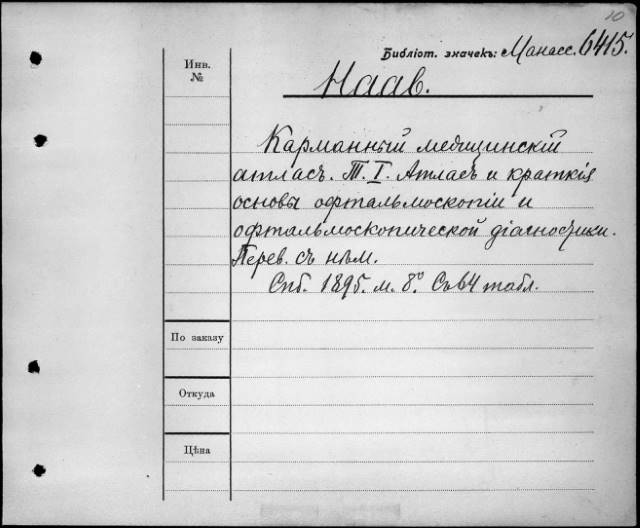 10
Библіот. значекъ: Манасс. 6415.
Инв.
№
Haab.
Карманный медицинскій
атласъ. Т. I. Атласъ и краткія
основы офтальмоскопіи и
офтальмоскопической діагностики.
Перев. съ нѣм.
Спб. 1895. м. 8° Съ 64 табл.
По заказу
Откуда
Цѣна